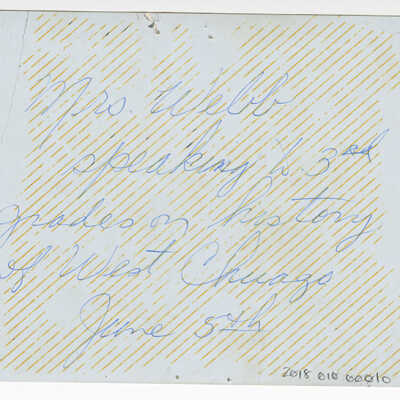 Mrs. Webb
speaking to 3rd
grades on history
of West Chicago
June 5th
2018 010 00010